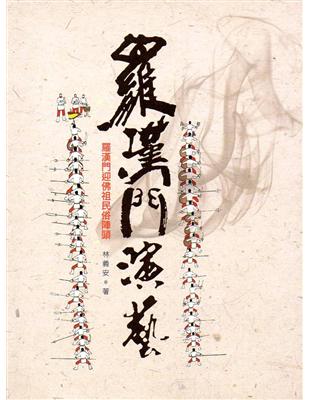 羅漢門演藝
羅漢門迎佛祖民俗陣頭
林義安●著